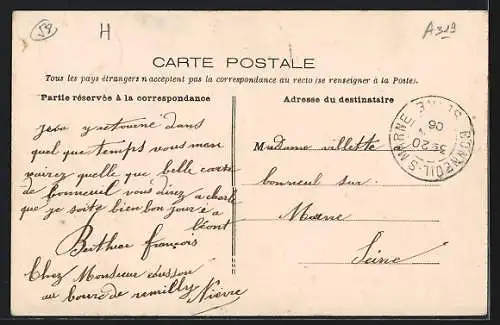 58
H
A319
CARTE POSTALE
Tous les pays étrangers n'acceptent pas la correspondance au recto (se renseigner à la Poste).
Partie réservée à la correspondance
Adresse du destinataire
jesu y retourné dans
quel que temps vous man
vairez quelle que belle carte
de bonneuil vous direz a charle
que je soite bien bon jour é a
léont
Berthier françois
Chez Monsieur
au bourc de remilly Nièvre
Madame villette
bonneuil sur
Marne
Seine
3E 20
06
S-MARNE